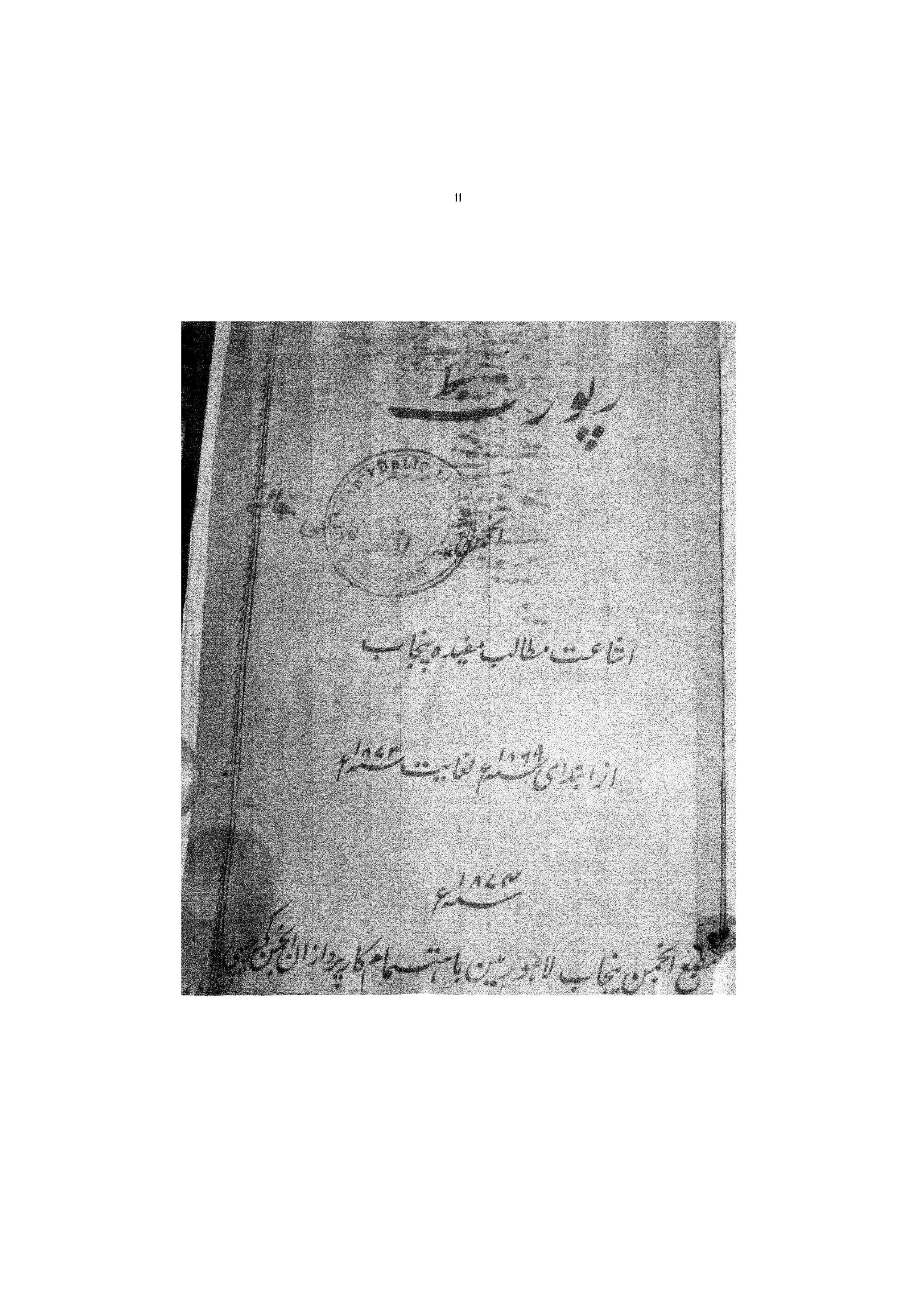 II
رپورٹ
PUBLIC LI
انجمن
اشاعت مطالب مفیدہ پنجاب
از ابتدای ۱۸۶۹ سنہ ء لغایت ۱۸۷۳ سنہ ء
۱۸۷۳ سنہ ء
انجمن پنجاب لاہور مین باہتمام کارپردازان انجمن کی